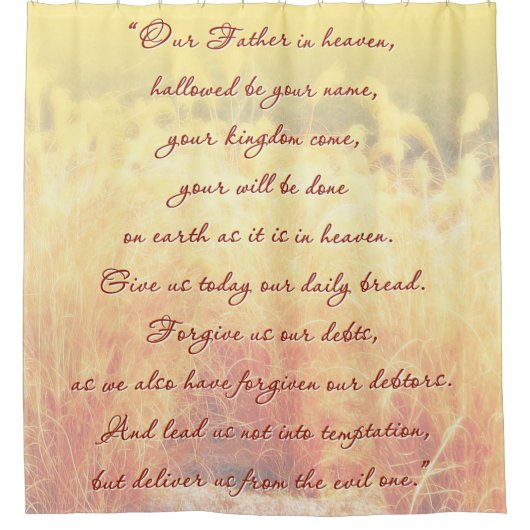 “Our Father in heaven,
hallowed be your name,
your kingdom come,
your will be done
on earth as it is in heaven.
Give us today our daily bread.
Forgive us our debts,
as we also have forgiven our debtors.
And lead us not into temptation,
but deliver us from the evil one.”